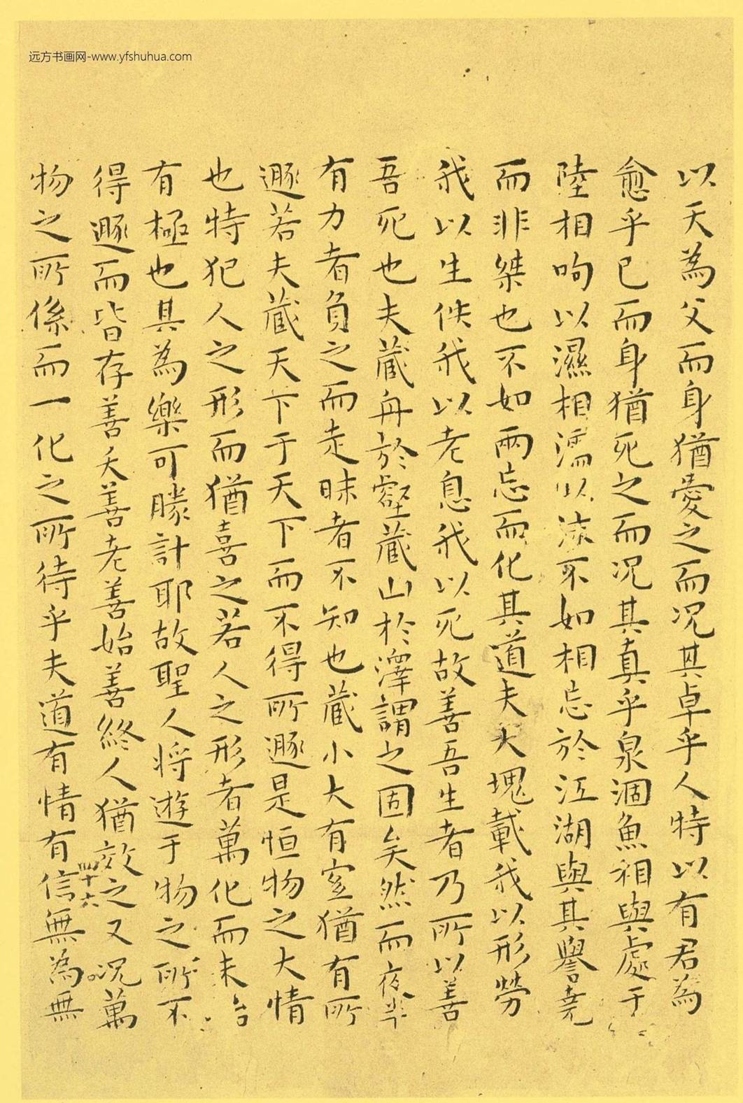 远方书画网-www.yfshuhua.com
以天為父而身猶愛之而况其卓乎人特以有君為
愈乎已而身猶死之而况其真乎泉涸魚相與處于
陸相呴以濕相濡以沫不如相忘於江湖與其譽堯
而非桀也不如兩忘而化其道夫大塊載我以形勞
我以生佚我以老息我以死故善吾生者乃所以善
吾死也夫藏舟於壑藏山於澤謂之固矣然而夜半
有力者負之而走昧者不知也藏小大有宜猶有所
遯若夫藏天下于天下而不得所遯是恒物之大情
也特犯人之形而猶喜之若人之形者萬化而未始
有極也其為樂可勝計耶故聖人將遊于物之所不
得遯而皆存善夭善老善始善終人猶效之又况萬
物之所係而一化之所待乎夫道有情有信無為無
四十六